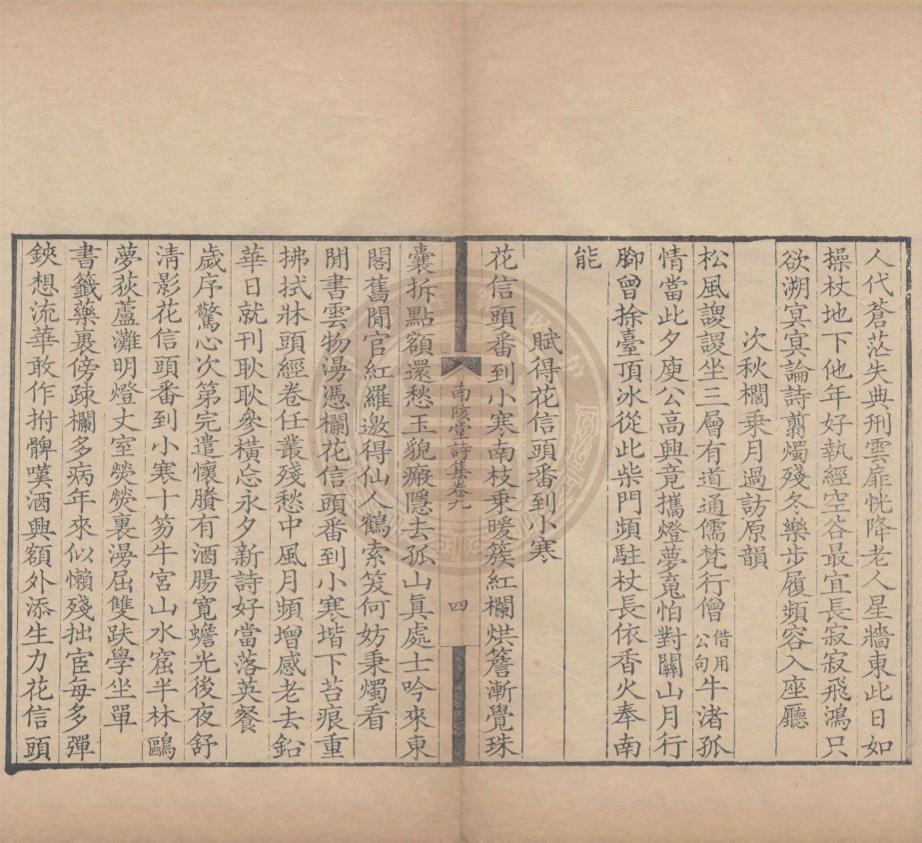 人代蒼茫失典刑雲扉恍降老人星牆東此日如
操杖地下他年好執經空谷最宜長寂寂飛鴻只
欲溯冥冥論詩翦燭殘冬樂步履頻容入座聽
次秋欄乗月過訪原韻
松風謖謖坐三層有道通儒梵行僧借用公句牛渚孤
情當此夕庾公高興竟攜燈夢䰟怕對關山月行
腳曾捈臺頂冰從此柴門頻駐杖長依香火奉南
能
賦得花信頭番到小寒
花信頭番到小寒南枝秉暖簇紅欄烘簷漸覺珠
南陔堂詩集卷九
四
囊拆點額還愁玉貌瘢隱去孤山眞處士吟來東
閣舊閒官紅羅邀得仙人鶴索笑何妨秉燭看
閒書雲物漫憑欄花信頭番到小寒堦下苔痕重
拂拭牀頭經卷任叢殘愁中風月頻增感老去鉛
華日就刊耿耿參橫忩永夕新詩好當落英餐
歲序驚心次第完遣懷賸有酒腸寬蟾光後夜舒
淸影花信頭番到小寒十笏牛宮山水窟半林鷗
夢荻蘆灘明燈丈室熒熒裏漫屈雙趺學坐單
書籤藥裹傍疎欄多病年來似懶殘拙宦每多彈
鋏想流華敢作拊髀嘆酒興額外添生力花信頭